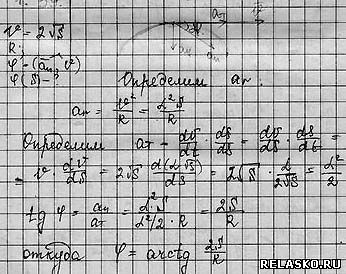 v = 2√S
R;
φ - (a⃗n v⃗)
φ(S) - ?
Определим an:
an = v²/R = 2²S/R
Определим aτ = dv/dt · ds/ds = dv/ds · ds/dt =
= v · dv/ds = 2√S · d(2√S)/ds = 2√S · 2/2√S = 2²/2
tg φ = an/aτ = 2²S/2²/2·R = 2S/R
откуда φ = arctg 2S/R
RELASKO.RU